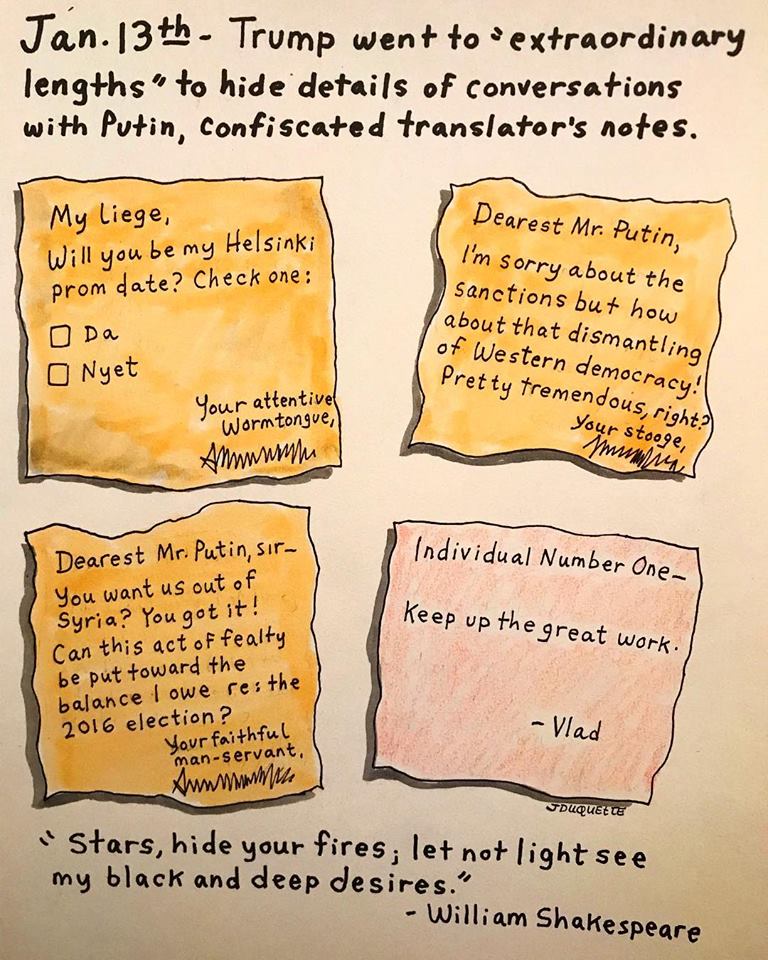 Jan. 13th - Trump went to "extraordinary
lengths" to hide details of conversations
with Putin, confiscated translator's notes.
My Liege,
Will you be my Helsinki
prom date? Check one:
Da
Nyet
Your attentive
Wormtongue,
Dearest Mr. Putin,
I'm sorry about the
sanctions but how
about that dismantling
of Western democracy!
Pretty tremendous, right?
Your stooge,
Dearest Mr. Putin, sir-
You want us out of
Syria? You got it!
Can this act of fealty
be put toward the
balance I owe re: the
2016 election?
Your faithful
man-servant,
Individual Number One-
Keep up the great work.
- Vlad
JDUQUETTE
"Stars, hide your fires; let not light see
my black and deep desires."
- William Shakespeare